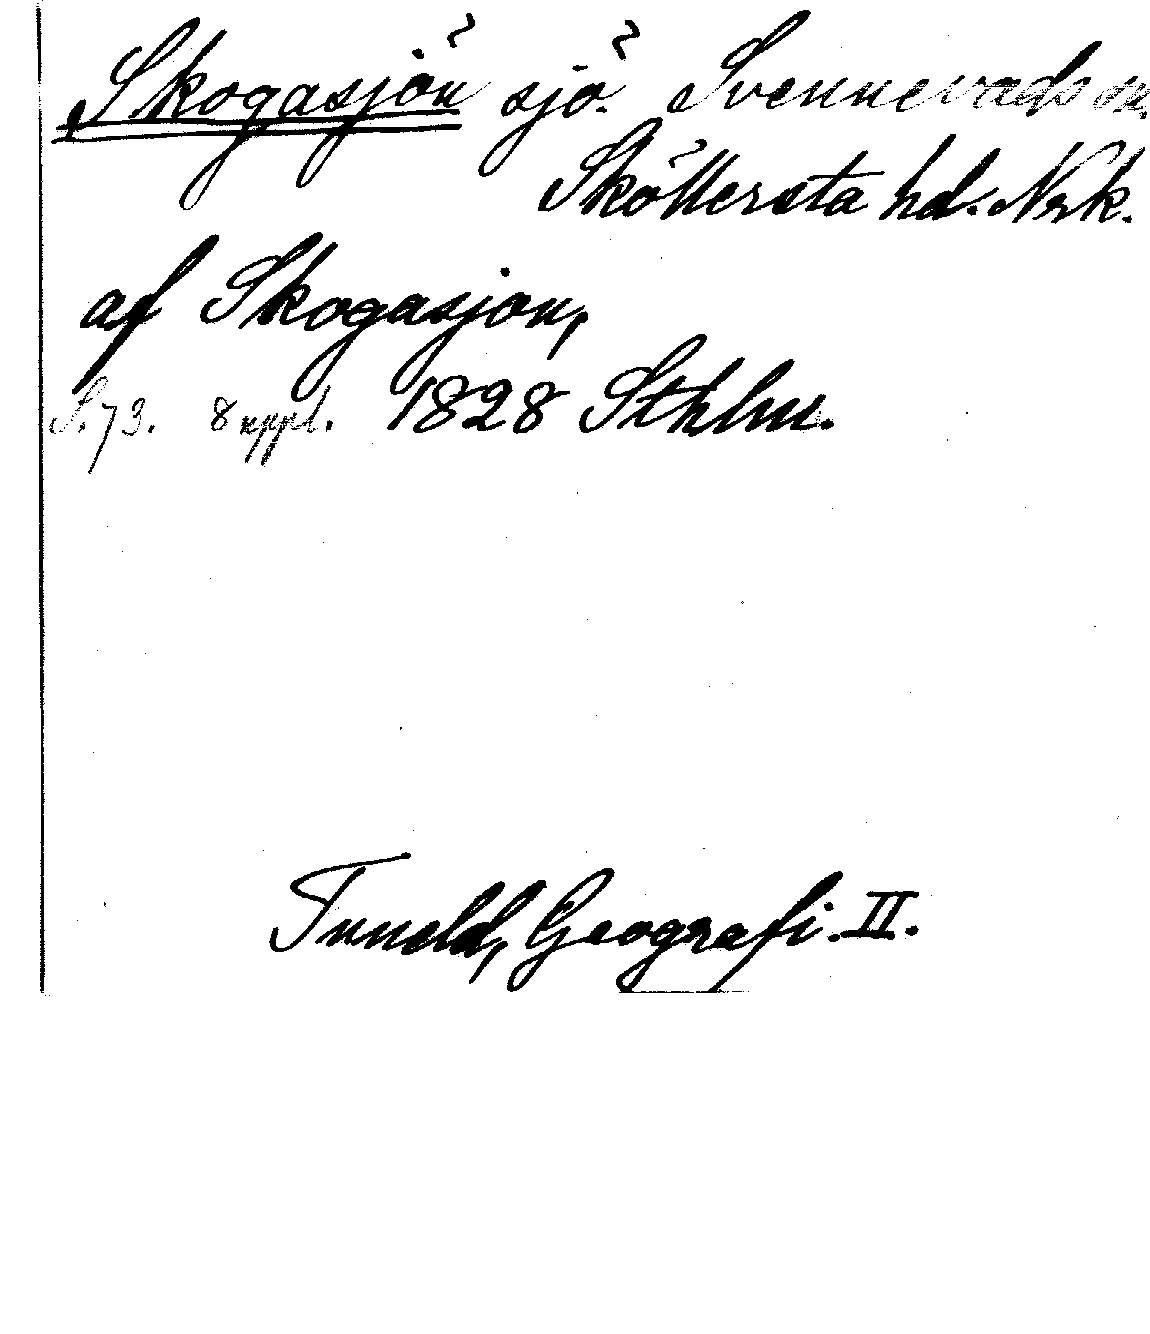 Skogasjön sjö. Svennevads sn.
Sköllersta hd. Nrk.
af Skogasjön,
S. 73. 8 uppl. 1828 Sthlm.
Tuneld, Geografi. II.